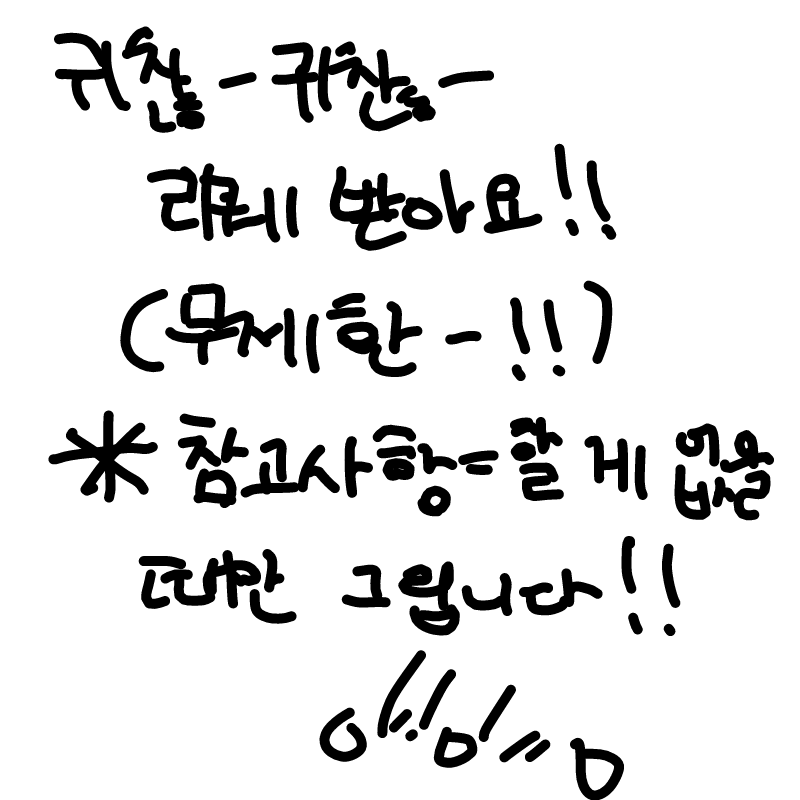 귀찮-귀찮-
리퀘 받아요!!
(무제한-!!)
*참고사항=할 게 없을
때만 그립니다!!